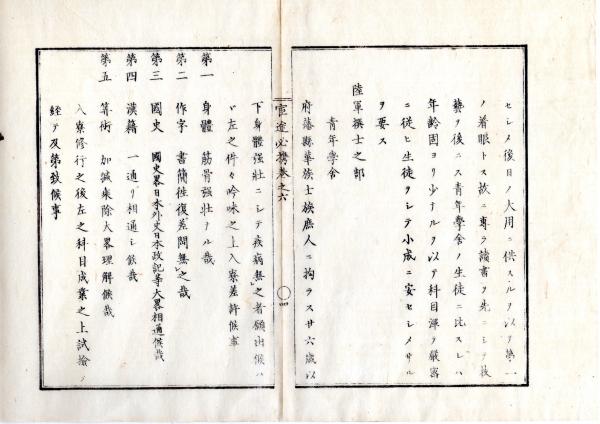 セシメ後日ノ大用ニ供スルヲ以テ第一
ノ着眼トス故ニ專ラ讀書ヲ先ニシテ技
藝ヲ後ニス青年學舍ノ生徒ニ比スレハ
年齡固ヨリ少ナルヲ以テ科目渾テ嚴密
ニ從ヒ生徒ヲシテ小成ニ安セシメサル
ヲ要ス
陸軍撰士之部
青年學舍
府藩縣華族士族庶人ニ拘ラス廿六歳以
官途必携卷之六
四
下身體强壯ニシテ疾病無之者願出候ハ
ヽ左之件々吟味之上入寮差許候事
第一 身體 筋骨强壯ナル哉
第二 作字 書簡徃復差閊無之哉
第三 國史 國史畧日本外史日本政記等大畧相通候哉
第四 漢籍 一通リ相通シ候哉
第五 算術 加減乘除大畧理解候哉
入寮修行之後左之科目成業之上試撿ヲ
經テ及第致候事